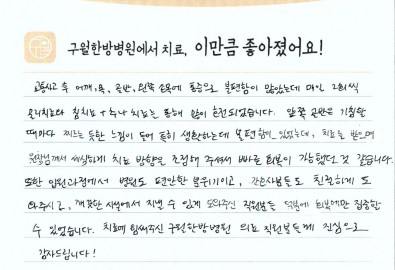 구월한방병원에서 치료, 이만큼 좋아졌어요!
교통사고 후 어깨, 목, 골반, 왼쪽 손목에 통증으로 불편함이 많았는데 매일 2회씩
물리치료와 침치료 + 추나 치료를 통해 많이 호전되었습니다. 앞쪽 골반은 기침할
때마다 찌르는 듯한 느낌이 들어 특히 생활하는데 불편함이 있었는데, 치료를 받으며
원장님께서 세심하게 치료 방향을 조절해 주셔서 빠른 회복이 가능했던 것 같습니다.
또한 입원과정에서 병원도 편안한 분위기이고, 간호사분들도 친절하게 도
와주시고, 깨끗한 시설에서 지낼 수 있게 도와주신 직원분들 덕분에 회복에만 집중할
수 있었습니다. 치료에 힘써주신 구월한방병원 의료 직원분들께 진심으로
감사드립니다!